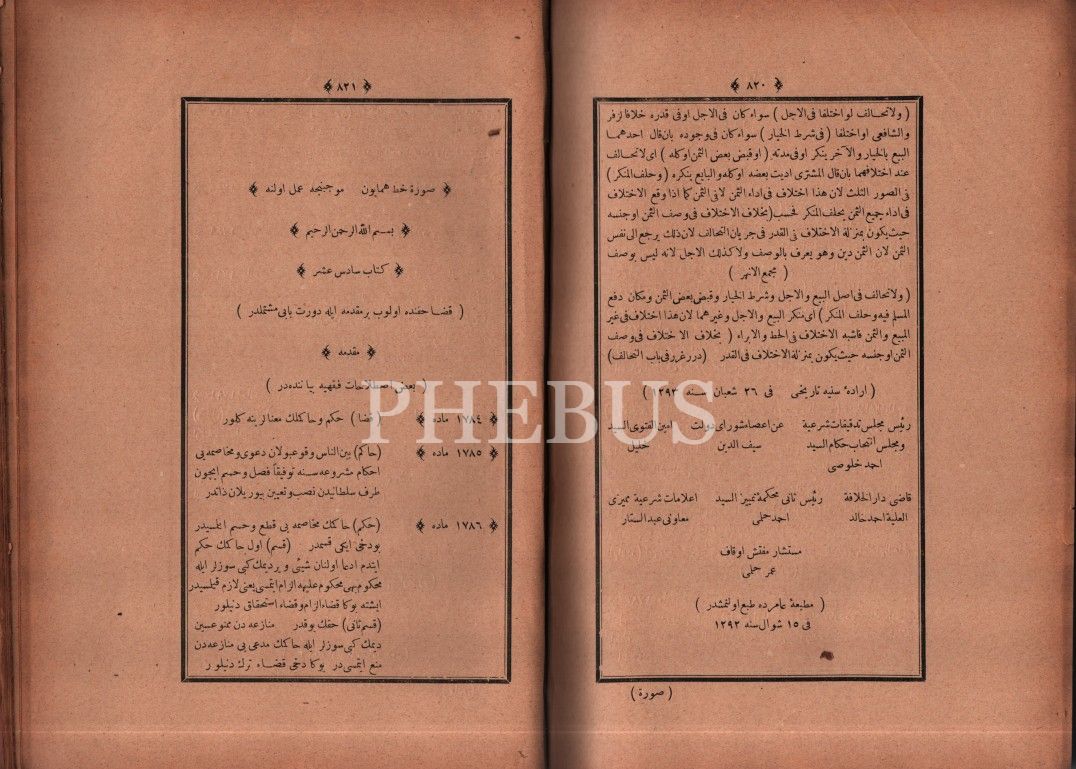 ﴿ ٨٢٠ ﴾
( ولا تحالف لو اختلفا فى الاجل ) سواء كان فى الاجل اوفى قدره خلافا لزفر
والشافعى او اختلفا ( فى شرط الخيار ) سواء كان فى وجوده بان قال احدهما
البيع بالخيار والآخر ينكر اوفى مدته ( اوقبض بعض الثمن اوكله ) اى لاتحالف
عند اختلافهما بان قال المشترى اديت بعضه اوكله والبايع ينكره ( وحلف المنكر )
فى الصور الثلث لان هذا اختلاف فى اداء الثمن لافى الثمن كما اذا وقع الاختلاف
فى اداء جميع الثمن يحلف المنكر فحسب (بخلاف الاختلاف فى وصف الثمن اوجنسه
حيث يكون بمنزلة الاختلاف فى القدر فى جريان التحالف لان ذلك يرجع الى نفس
الثمن لان الثمن دين وهو يعرف بالوصف ولا كذلك الاجل لانه ليس بوصف
( مجمع الانهر )
( ولا تحالف فى اصل البيع والاجل وشرط الخيار وقبض بعض الثمن ومكان دفع
المسلم فيه وحلف المنكر ) اى منكر البيع والاجل وغيرهما لان هذا اختلاف فى غير
المبيع والثمن فاشبه الاختلاف فى الحط والابراء ( بخلاف الاختلاف فى وصف
الثمن اوجنسه حيث يكون بمنزلة الاختلاف فى القدر (درر غرر فى باب التحالف)
( اراده سنيه تاريخى فى ٢٦ شعبان سنه ١٢٩٣ )
رئيس مجلس تدقيقات شرعية عن اعضا شوراى دولت امين الفتوى السيد
ومجلس انتخاب حكام السيد سيف الدين خليل
احمد خلوصى
قاضى دار الخلافة رئيس ثانى محكمة تمييز السيد اعلامات شرعية مميزى
العلية احمد خالد احمد حلمى معاونى عبد الستار
مستشار مفتش اوقاف
عمر حلمى
( مطبعۀ عامره ده طبع اولنمشدر )
فى ١٥ شوال سنه ١٢٩٣
( صورة )
﴿ ٨٢١ ﴾
﴿ صورة خط همايون موجبنجه عمل اولنه ﴾
﴿ بسم الله الرحمن الرحيم ﴾
﴿ كتاب سادس عشر ﴾
( قضا حقنده اولوب بر مقدمه ايله دورت بابى مشتملدر )
﴿ مقدمه ﴾
( بعض اصطلاحات فقهيه بياننده در )
﴿ ١٧٨٤ ماده ﴾ (قضا) حكم وحاكملك معنالرينه كلور
﴿ ١٧٨٥ ماده ﴾ (حاكم) بين الناس وقوعبولان دعوى ومخاصمه يى
احكام مشروعه سنه توفيقاً فصل وحسم ايچون
طرف سلطانيدن نصب وتعيين بيوريلان ذاتدر
﴿ ١٧٨٦ ماده ﴾ (حكم) حاكمك مخاصمه يى قطع وحسم ايتمسيدر
بو دخى ايكى قسمدر (قسم) اول حاكمك حكم
ايتدم ادعا اولنان شيئى وير ديمك كبى سوزلر ايله
محكوم بهى محكوم عليهه الزام ايتمسى يعنى لازم قيلمسيدر
ايشته بوكا قضاء الزام وقضاء استحقاق دنيلور
(قسم ثانى) حقك يوقدر منازعه دن ممنوعسين
ديمك كبى سوزلر ايله حاكمك مدعى يى منازعه دن
منع ايتمسى در بوكا دخى قضاء ترك دنيلور
PHEBUS